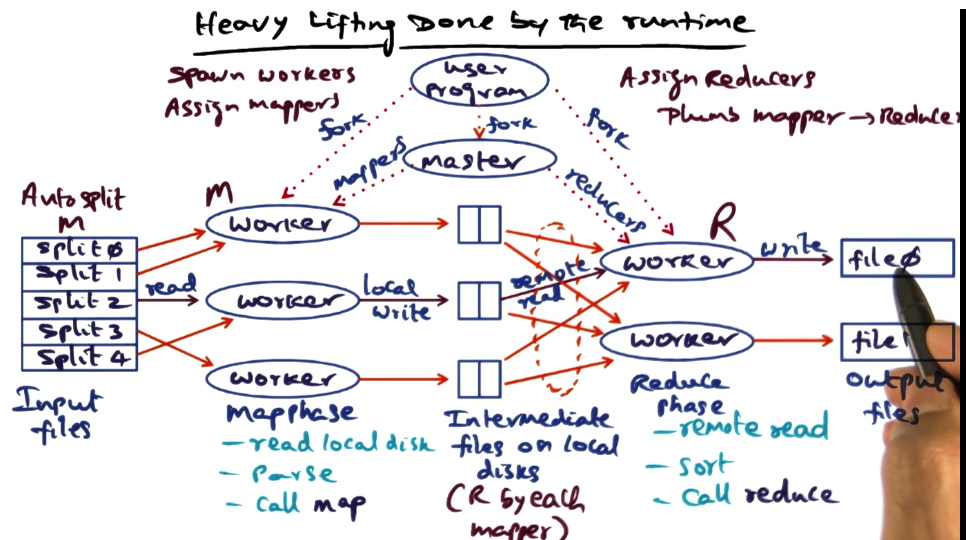 Heavy Lifting Done by the runtime
Spawn workers
Assign mappers
user
program
Assign Reducers
Plumb mapper → Reducer
fork
fork
fork
mappers
master
reducers
Auto split
M
M
R
split 0
split 1
split 2
split 3
split 4
read
worker
worker
worker
local
write
remote
read
worker
worker
write
file 0
file 1
Input
files
map phase
- read local disk
- Parse
- Call map
Intermediate
files on local
disks
(R by each
mapper)
Reduce
phase
- remote read
- Sort
- Call reduce
Output
files